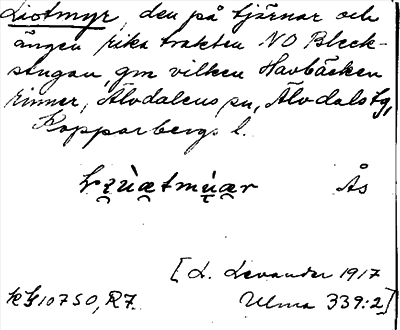 Liotmyr, den på tjärnar och
ängen rika trakten NO Bleck-
stugan, gm vilken Havbäcken
rinner, Älvdalens sn, Älvdals tg,
Kopparbergs l.
Ås
[L. Levander 1917
Ulma 339:2]